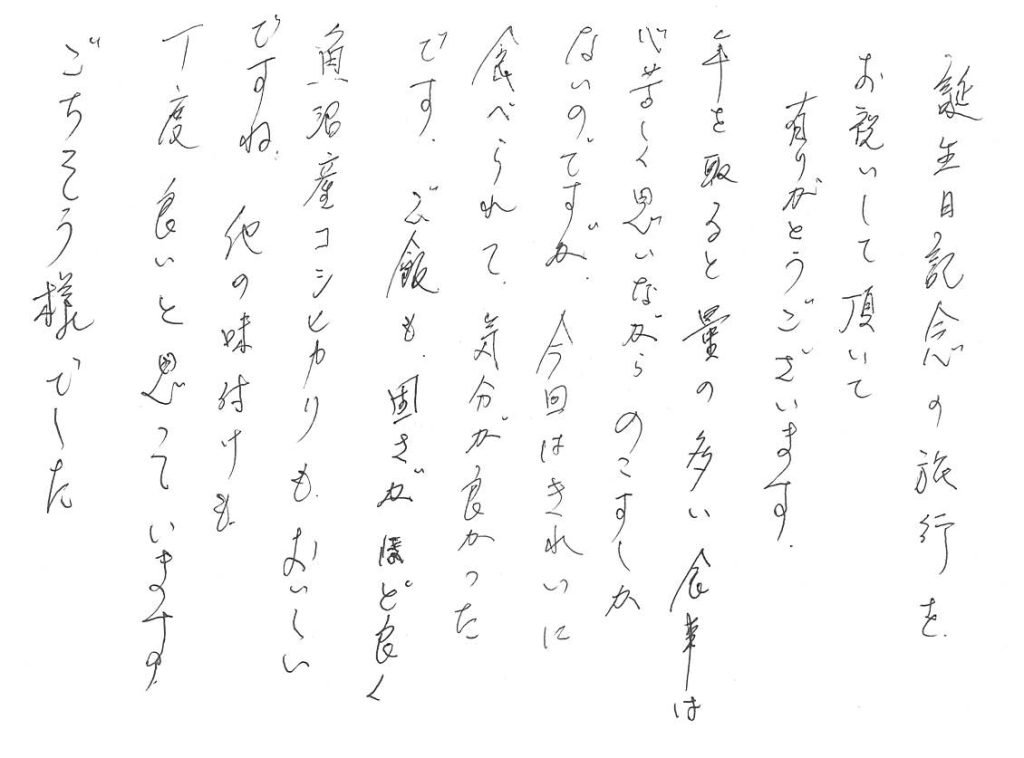 誕生日記念の旅行を
お祝いして頂いて
有りがとうございます.
年を取ると量の多い食事は
心苦しく思いながらのこすしか
ないのですが.今回はきれいに
食べられて.気分が良かった
です.ご飯も.固さがほど良く
魚沼産コシヒカリも.おいしい
ですね.他の味付けも.
丁度良いと思っています.
ごちそう様でした